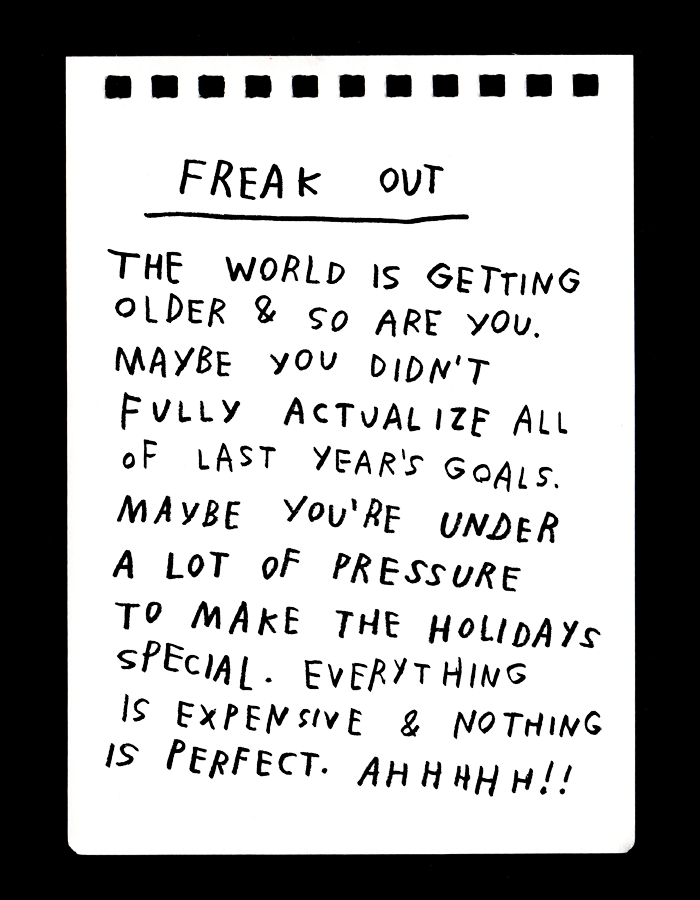 FREAK OUT
THE WORLD IS GETTING
OLDER & SO ARE YOU.
MAYBE YOU DIDN'T
FULLY ACTUALIZE ALL
OF LAST YEAR'S GOALS.
MAYBE YOU'RE UNDER
A LOT OF PRESSURE
TO MAKE THE HOLIDAYS
SPECIAL. EVERYTHING
IS EXPENSIVE & NOTHING
IS PERFECT. AHHHHH!!